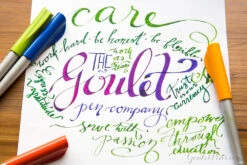 care
work hard · be honest · be flexible
THE
Goulet
pen company
work as a team
trust is our currency
serve with passion
empower through education
GouletPens.com